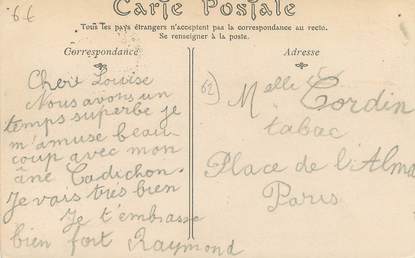 66
Carte Postale
Tous les pays étrangers n'acceptent pas la correspondance au recto.
Se renseigner à la poste.
Correspondance
Cherie Louise
Nous avons un
temps superbe je
m'amuse beau-
coup avec mon
âne Cadichon.
Je vais très bien
Je t'embrasse
bien fort Raymond
Adresse
62)
Melle Cordin
tabac
Place de l'Alma
Paris